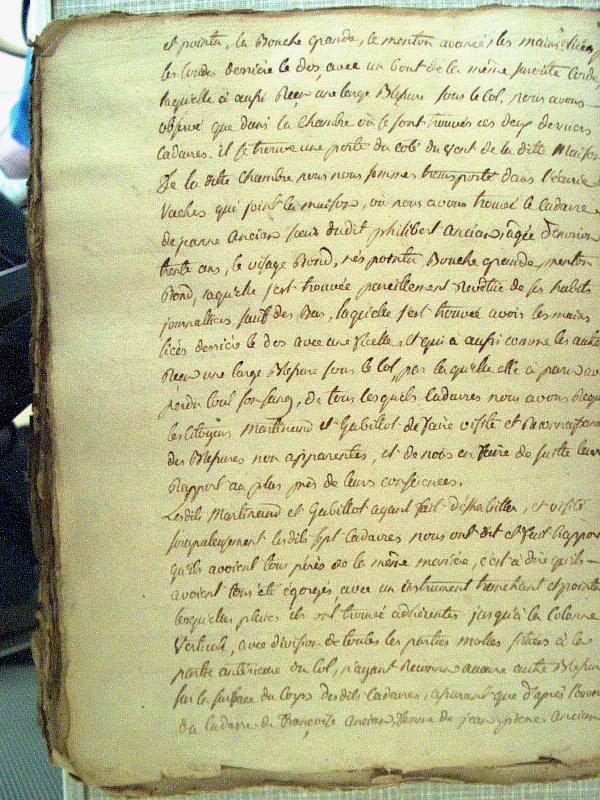 et pointu, la Bouche grande, le menton avancé, les mains liées
les coudes derrière le dos, avec un bout de la même pareille corde
laquelle a aussi Reçu une large Blessure sous le col, nous avons
observé que dans la Chambre où se sont trouvés ces deux derniers
Cadavres. il se trouve une porte du coté du vent de la ditte Maison
De la ditte Chambre nous nous sommes transporté dans l'écurie
Vaches qui joint la maison, où nous avons trouvé le Cadavre
de jeanne Ancian sœur dudit philibert Ancian, agée d'environ
trente ans, le visage Rond, nés pointu, Bouche grande, menton
Rond, laquelle s'est trouvée pareillement Revêtue de ses habits
journalliers sauf des Bas, laquelle s'est trouvée avoir les mains
liées derrière le dos avec une ficelle, et qui a aussi comme les autres
Reçu une large Blessure sous le col, par laquelle elle a paru avoir
perdu tout son sang, de tous lesquels Cadavres nous avons Requis
les Citoyens Martinaud et Gabillot de faire visite et Reconnaissance
des Blessures non apparentes, et de nous en faire de suitte leur
Rapport au plus près de leurs consciences.
Lesdits Martinaud et Gabillot ayant fait déshabiller, et visité
scrupuleusement lesdits sept Cadavres nous ont dit et fait Rapport
qu'ils avoient tous péris de la même manière, c'est à dire qu'ils
avoient tous été égorgés avec un instrument tranchant et pointu
lesquelles playes ils ont trouvé adhérentes jusqu'à la Colonne
Verticale, avec division de toutes les parties molles situées à la
partie antérieure du Col, n'ayant Reconnu aucune autre Blessure
sur la surface du Corps desdits Cadavres, assurant que d'après l'ouverture
du Cadavre de françoise Ancian, femme de jean pierre Ancian